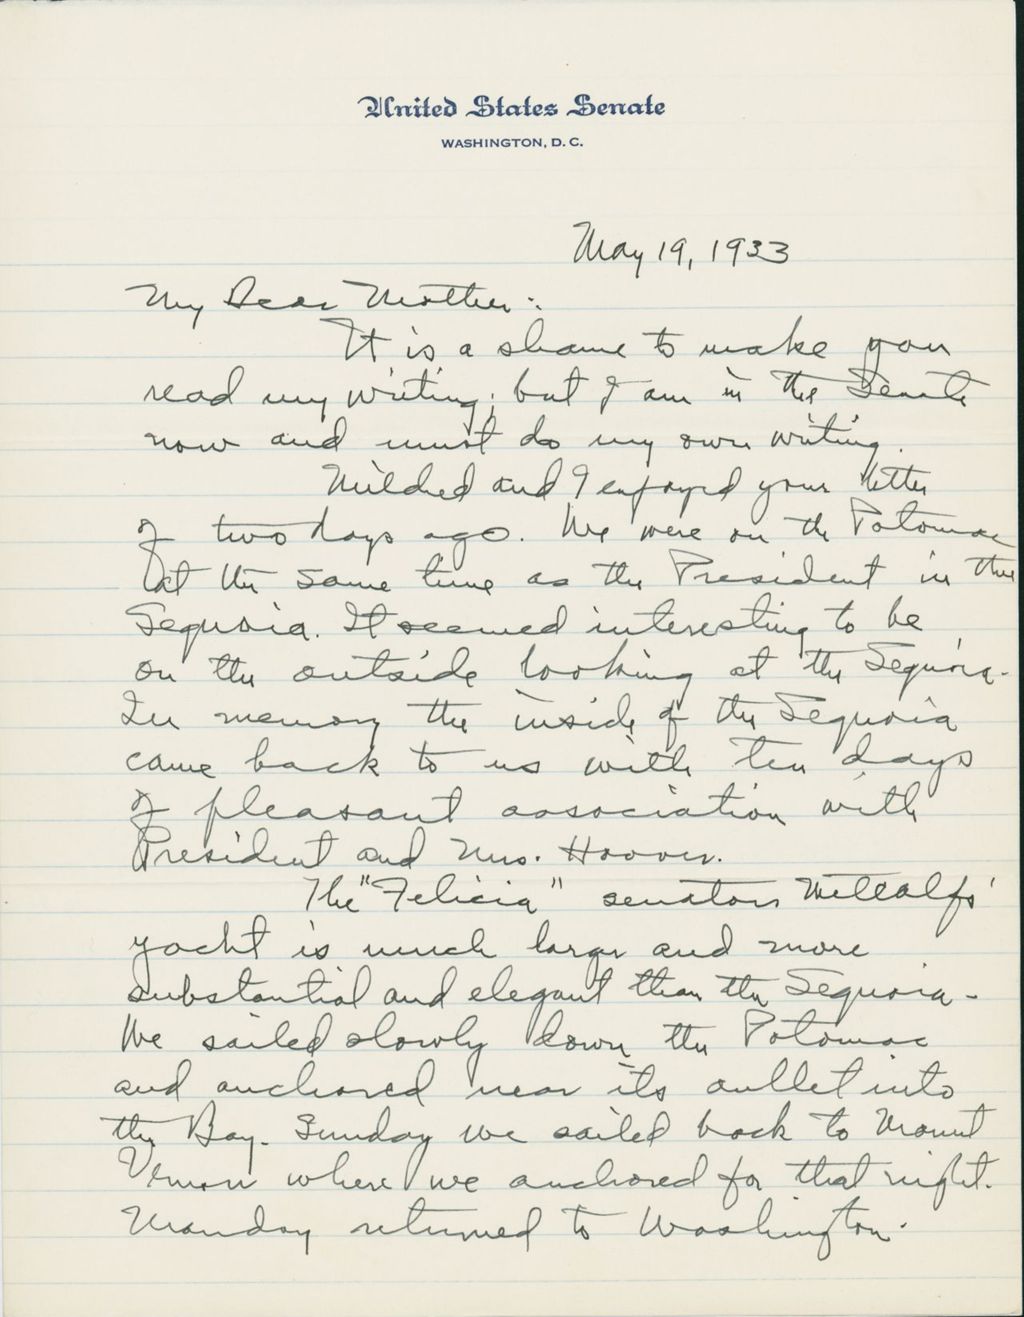 United States Senate
WASHINGTON, D. C.
May 19, 1933
My Dear Mother:
It is a shame to make you
read my writing; but I am in the Senate
now and must do my own writing.
Mildred and I enjoyed your letter
of two days ago. We were on the Potomac
at the same time as the President in the
Sequoia. It seemed interesting to be
on the outside looking at the Sequoia.
In memory the inside of the Sequoia
came back to us with ten days
of pleasant association with
President and Mrs. Hoover.
The "Felicia" senators Metcalfs'
yacht is much larger and more
substantial and elegant than the Sequoia-
We sailed slowly down the Potomac
and anchored near its outlet into
the Bay. Sunday we sailed back to Mount
Vernon where we anchored for that night.
Monday returned to Washington.